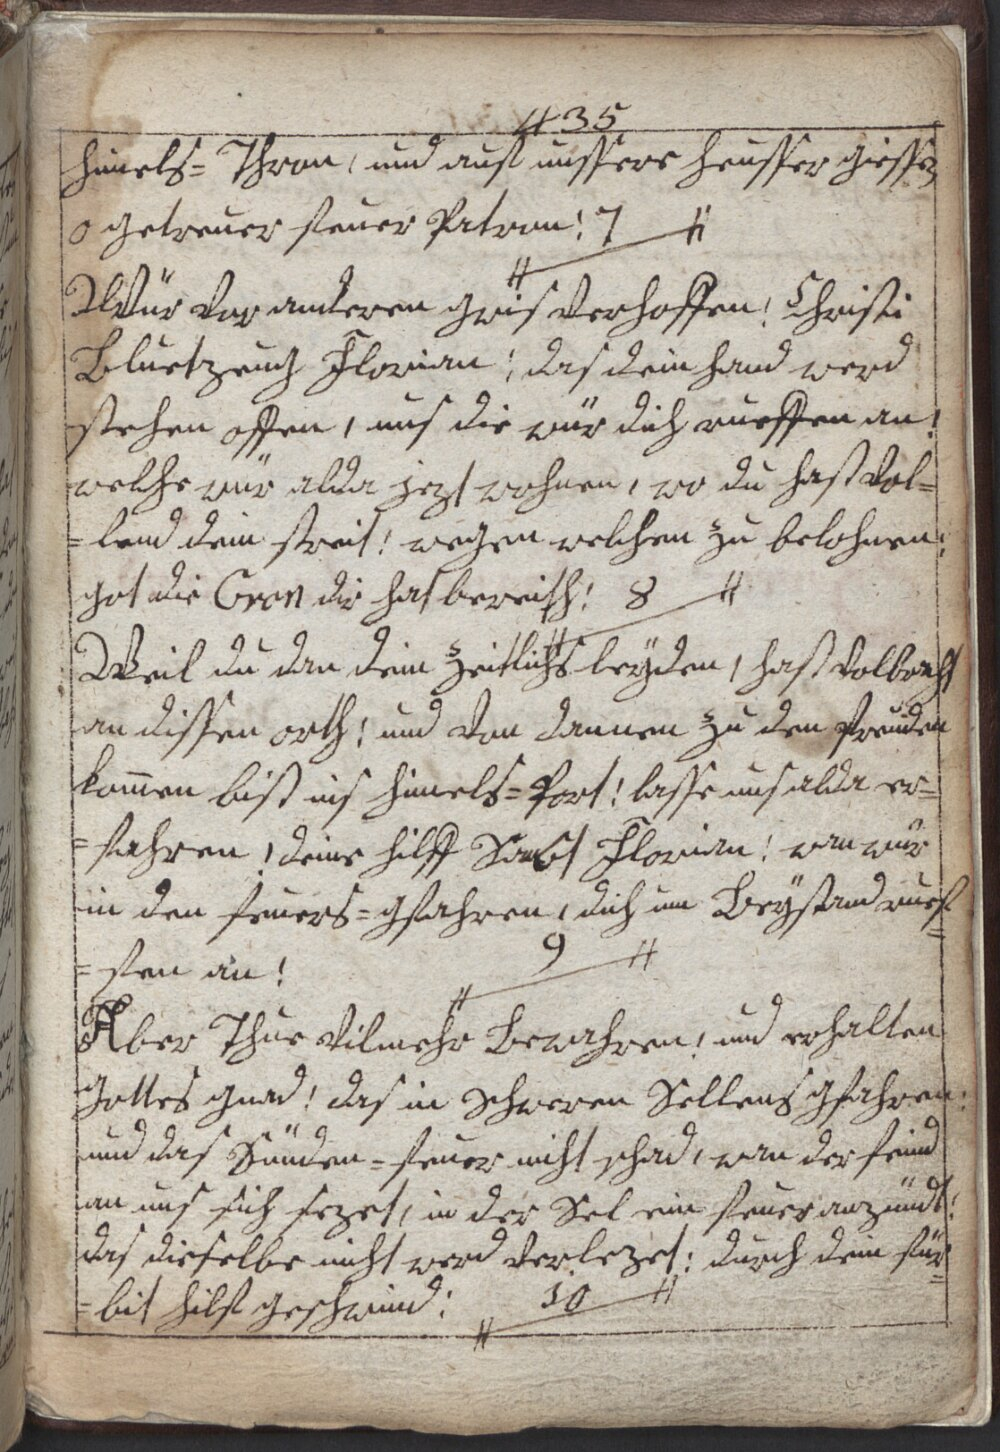 435
himels= Thron, und auß unssere heusser giessen
o getreuer feuer Patron! 7
Wür vor anderen gwis verhoffen! Christi
Bluetzeug Florian! das dein hand werd
stehen offen, uns die wür dich rueffen an!
welche wür alda jezt wohnen, wo du hast vol=
=lend dein streit! wegen welchen zu belohnen:
got die Cron dir hat bereith! 8
Weil du dan dein zeitlichs leyden, hast volbracht
an dissen orth! und von dannen zu den freuden
kom̅en bist ins himels=Port! lasse uns alda er=
=fahren! deine hilff Sanct Florian! wan wür
in den feuers=gfahren, dich um Beystand ruef=
=fen an! 9
Aber Thue vilmehr Bewahren! und erhalten
Gottes gnad! das in schweren Sellens gfahren:
und das Sünden=feuer nicht schad, wan der feind
an uns sich sezet, in der Sel ein feuer anzündt!
das dieselbe nicht werd verlezet: durch dein für=
=bit hilf geschwind: 10